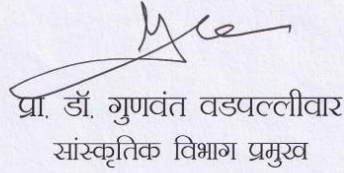 प्रा. डॉ. गुणवंत वडपल्लीवार
सांस्कृतिक विभाग प्रमुख